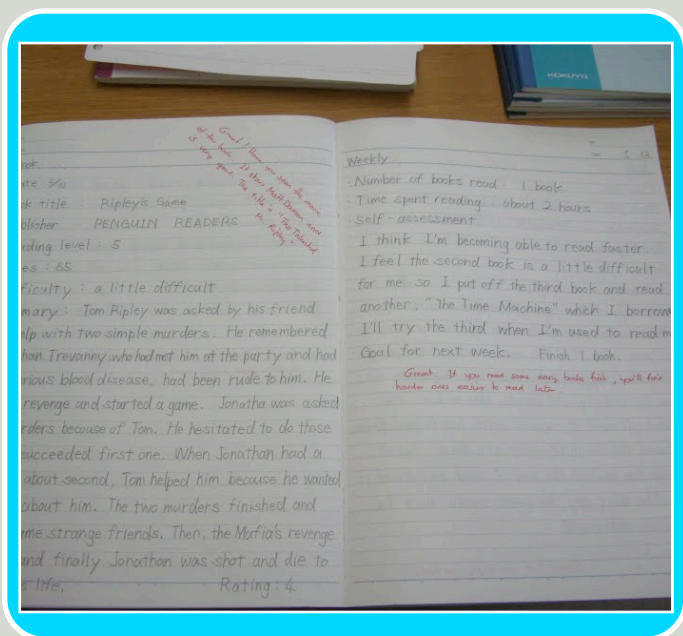 KOKUYO
ook
ate 5/10
ok title : Ripley's Game
blisher PENGUIN READERS
ading level : 5
es : 85
ficulty : a little difficult
mary : Tom Ripley was asked by his friend
elp with two simple murders. He remembered
than Trevanny who had met him at the party and had
rious blood disease, had been rude to him. He
revenge and started a game. Jonatha was asked
rders because of Tom. He hesitated to do those
succeeded first one. When Jonathan had a
about second, Tom helped him because he wanted
about him. The two murders finished and
me strange friends. Then, the Mafia's revenge
and finally Jonathan was shot and die to
s life. Rating : 4
Great! Have you seen the movie
of this book. It stars Matt Damon and
is very good. The title is "The Talented
Mr. Ripley"
Weekly
Number of books read : 1 book
Time spent reading : about 2 hours
Self - assessment
I think I'm becoming able to read faster.
I feel the second book is a little difficult
for me so I put off the third book and read
another, "The Time Machine" which I borrow
I'll try the third when I'm used to read m
Goal for next week. Finish 1 book.
Great. If you read some easy books first, you'll find
harder ones easier to read later.